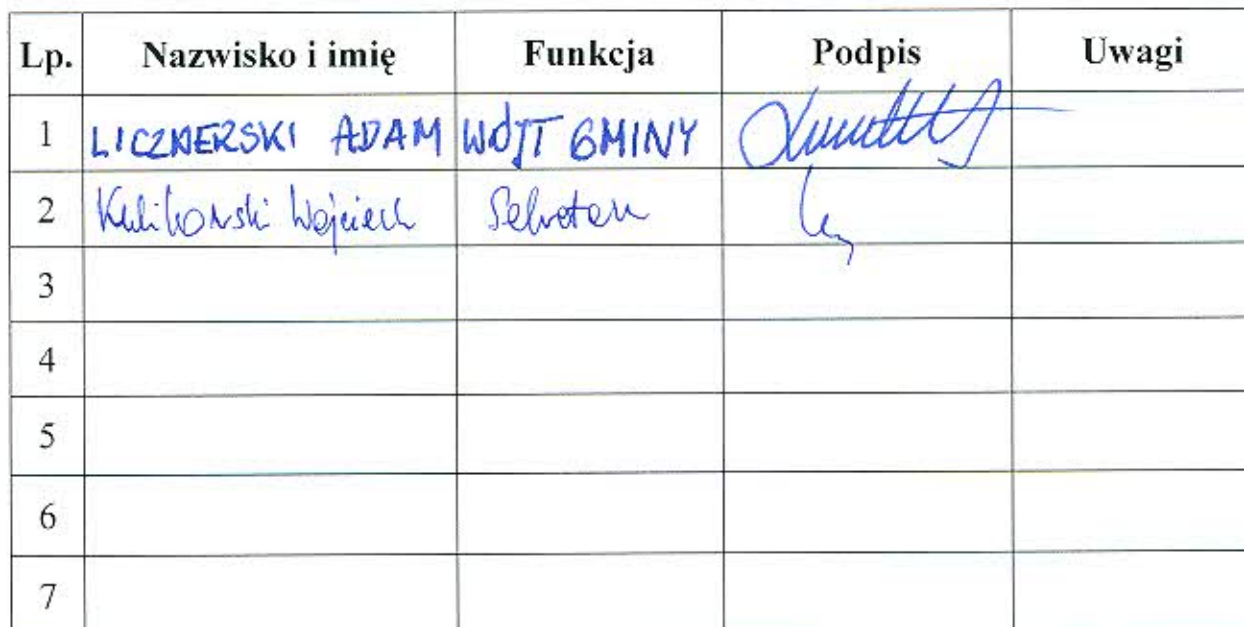 Lp. Nazwisko i imię Funkcja Podpis Uwagi
1 LICZNERSKI ADAM WÓJT GMINY
2 Kulikowski Wojciech Sekretarz
3
4
5
6
7